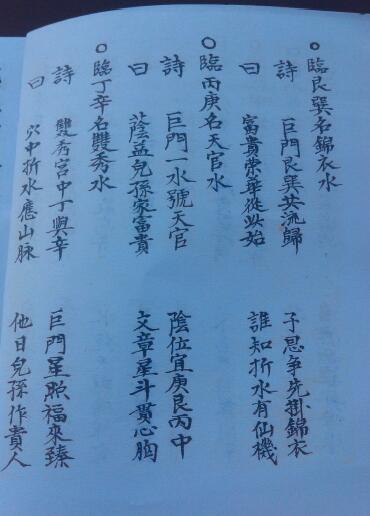 ○臨艮巽名錦衣水
詩 巨門艮巽共流歸 子息爭先掛錦衣
曰 富貴榮華從此始 誰知折水有仙機
○臨丙庚名天官水
詩 巨門一水號天官 陰位宜庚艮丙中
曰 蔭益兒孫家富貴 文章星斗貫心胸
○臨丁辛名雙秀水
詩 雙秀宮中丁與辛 巨門星照福來臻
曰 穴中折水應山脉 他日兒孫作貴人